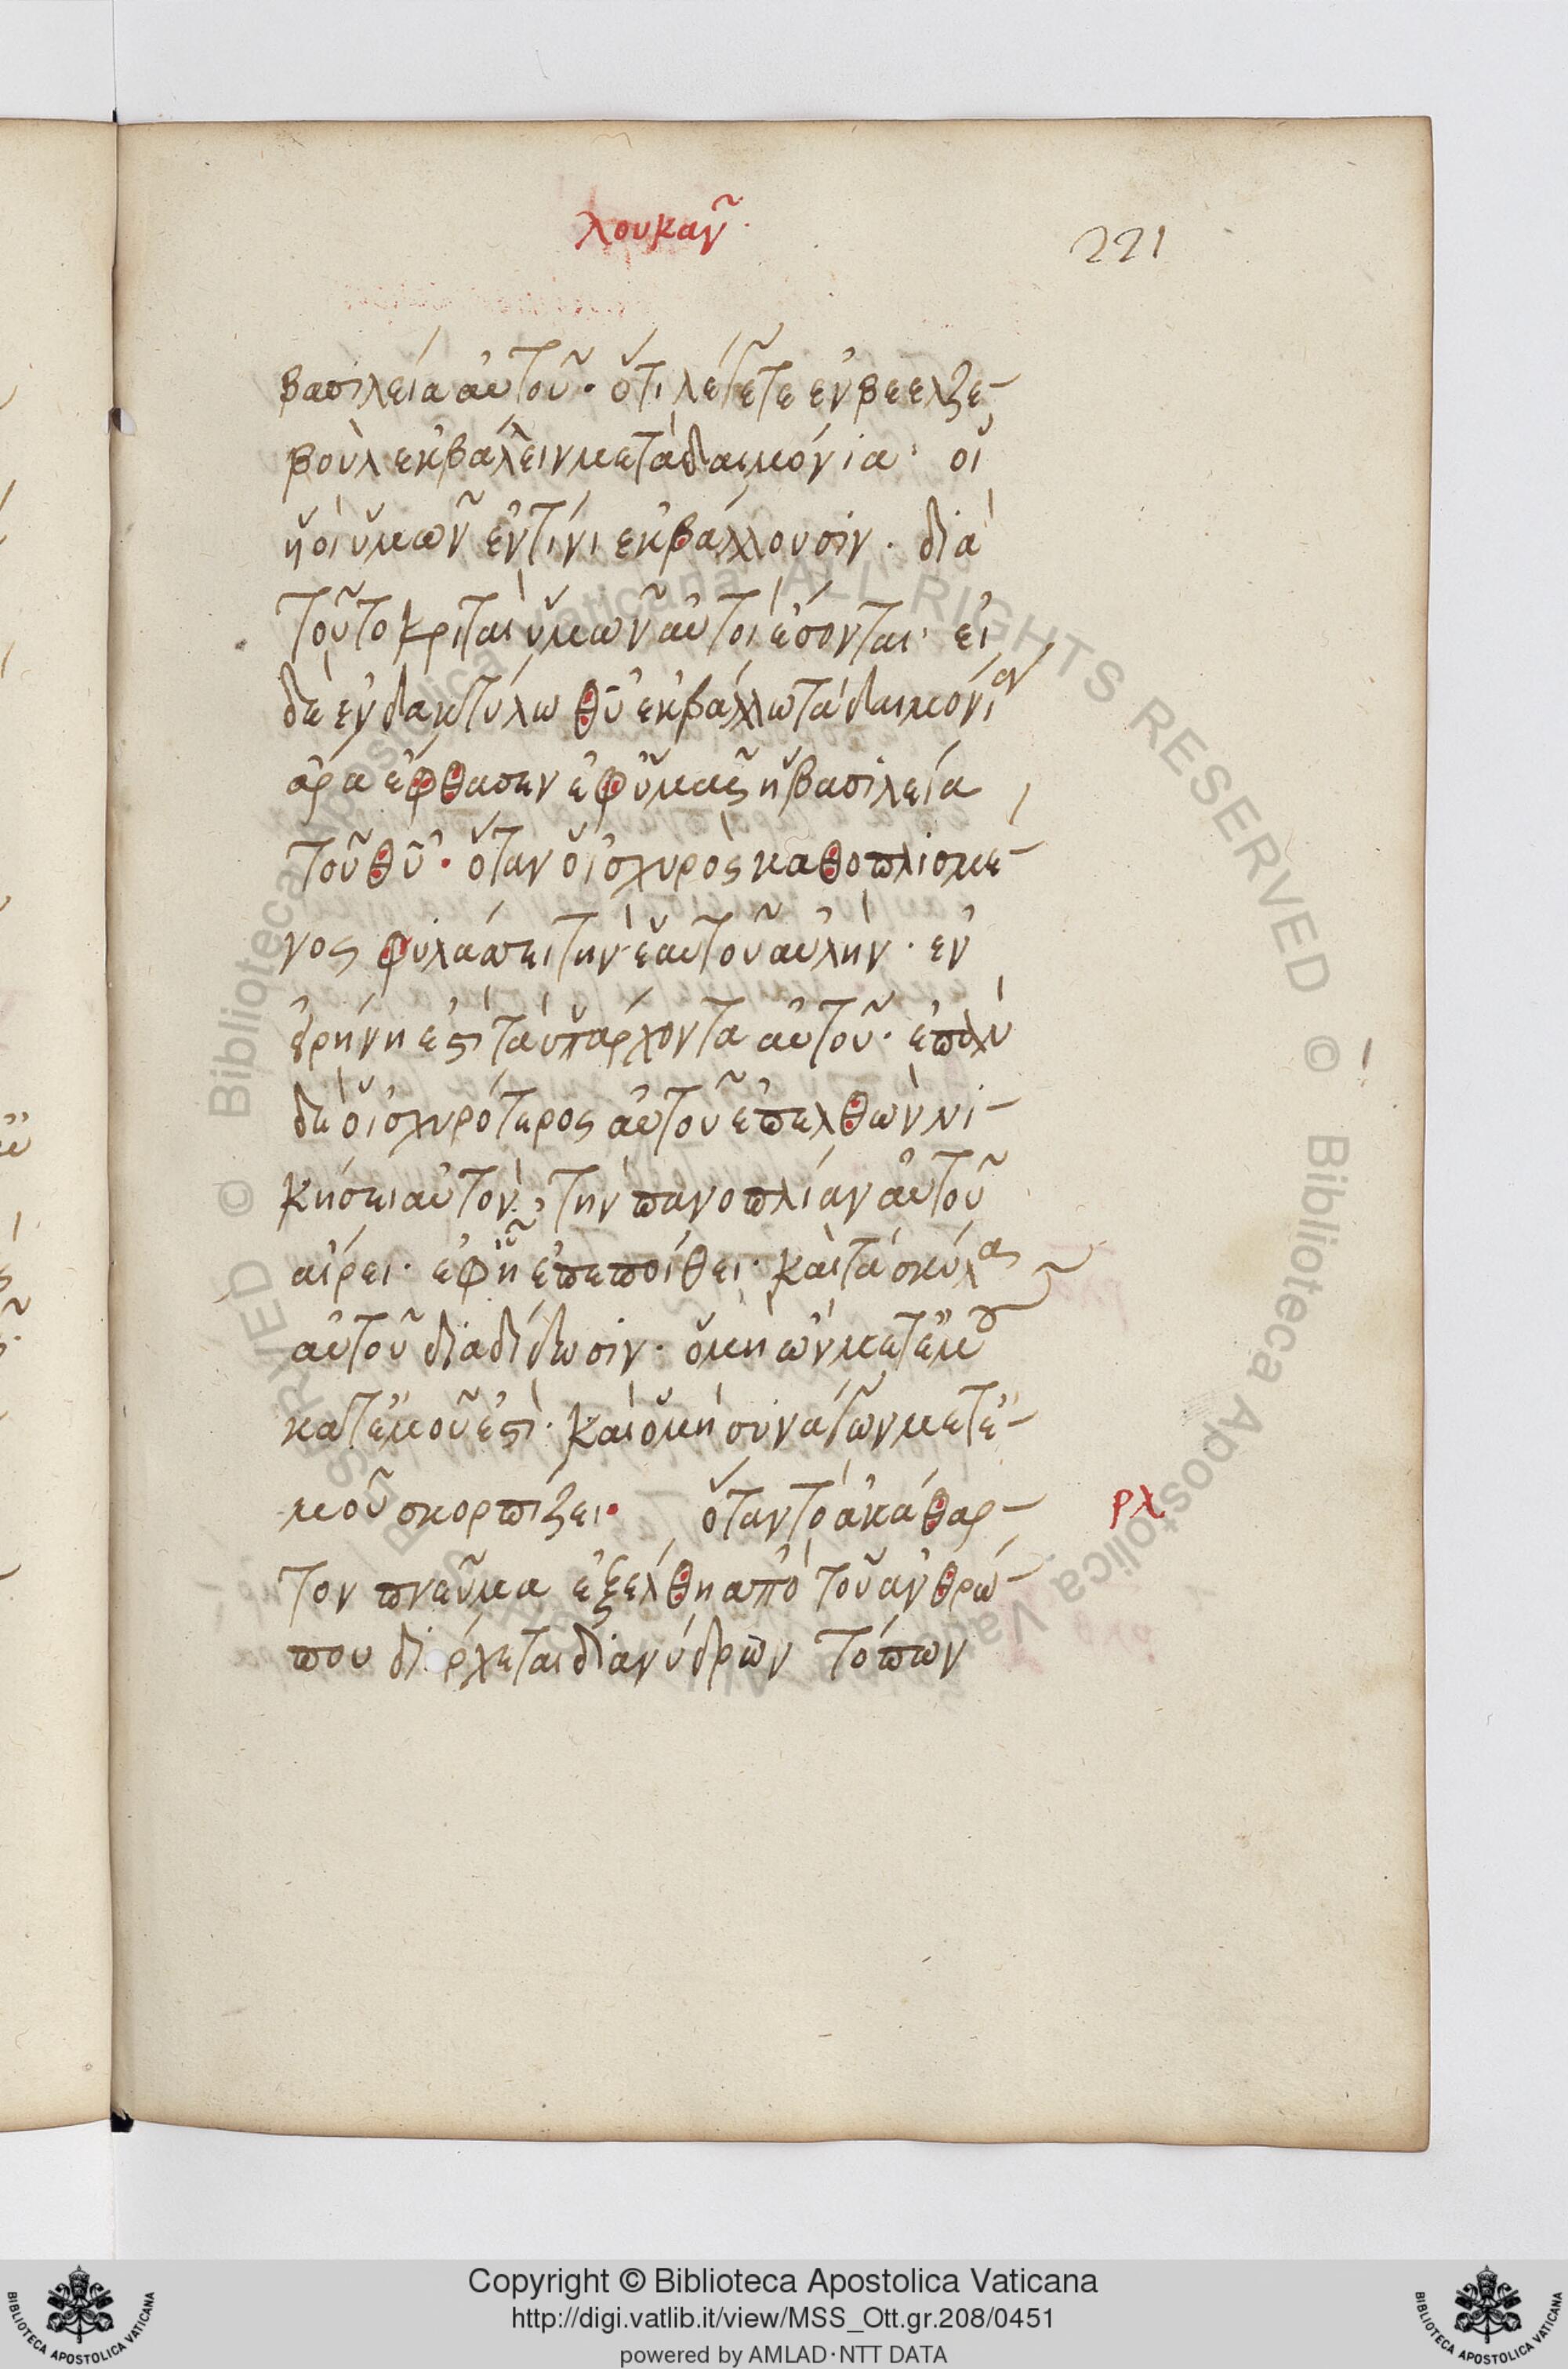 λουκαν
221
βασιλεία αὐτοῦ· ὅτι λέγετε ἐν βεελζε-
βοὺλ ἐκβάλειν με τὰ δαιμόνια· οἱ
ὑοὶ ὑμῶν ἐν τίνι ἐκβάλλουσιν· διὰ
τοῦτο κριταὶ ὑμῶν αὐτοὶ ἔσονται· εἰ
δὲ ἐν δακτύλω θῦ ἐκβάλλω τὰ δαιμόνι
ἄρα ἔφθασεν ἐφ ὑμᾶς ἡ βασιλεία
τοῦ θῦ· ὅταν ὁ ἰσχυρὸς καθοπλισμέ-
νος φυλάσσει τὴν ἑαυτοῦ αὐλὴν· ἐν
εἰρήνη ἐστὶ τὰ ὑπάρχοντα αὐτοῦ·
δὲ ὁ ἰσχυρότερος αὐτοῦ ἐπελθὼν νι-
κήσει αὐτὸν, τὴν πανοπλίαν αὐτοῦ
αἴρει· ἐφ ᾗ ἐπεποίθει· καὶ τὰ σκύλα
αὐτοῦ διαδίδωσιν· ὁ μὴ ὢν μετ ἐμοῦ
κατ ἐμοῦ ἐστὶ· καὶ ὁ μὴ συνάγων μετ ἐ-
μοῦ σκορπίζει· ὅταν τὸ ἀκάθαρ-
ρλ
τον πνεῦμα ἐξέλθη ἀπὸ τοῦ ἀνθρώ-
που δι ρχεται δι ἀνύδρων τόπων
Copyright © Biblioteca Apostolica Vaticana
http://digi.vatlib.it/view/MSS_Ott.gr.208/0451
powered by AMLAD·NTT DATA